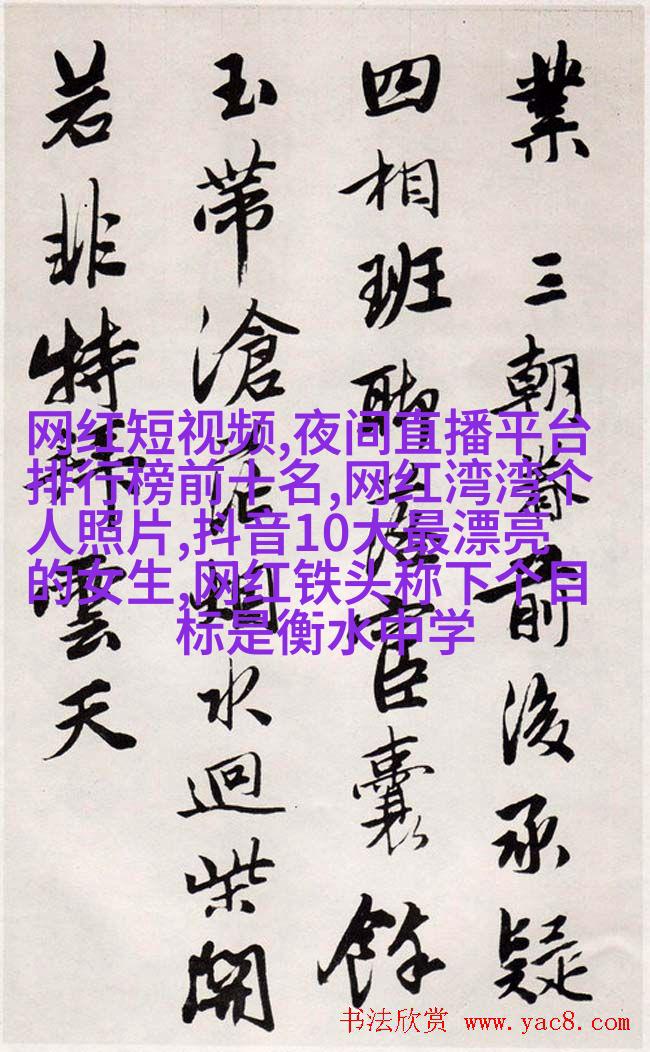 業三朝眷前後承疑
四相班聯宦囊餘
玉帶滄水迴柴開
若非特拜雲天
网红短视频,夜间直播平台
排行榜前十名,网红湾湾个
人照片,抖音10大最漂亮
的女生,网红铁头称下个目
标是衡水中学
书法欣赏 www.yac8.com